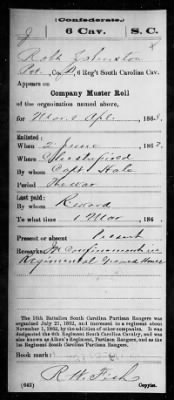 (Confederate.)
J 6 Cav. S. C.
Robt Johnston
Pvt, Co. D, 6 Reg't South Carolina Cav.
Appears on
Company Muster Roll
of the organization named above,
for Mar & Apl, 186
Enlisted:
When 2 June, 186
Where Chesterfield
By whom Capt
Period The war
Last paid:
By whom
To what time 1 Mar, 186
Present or absent Present
Remarks: In confinement in
Regimental Guard House
The 16th Battalion South Carolina Partisan Rangers was
organized July 21, 1862, and increased to a regiment about
November 1, 1862, by the addition of
designated the 6th Regiment South Carolina Cavalry, and was
also known as Aiken's Regiment, Partisan Rangers, and as the
1st Regiment South Carolina Partisan Rangers.
Book mark:
R. W. Fish
(642) Copyist.